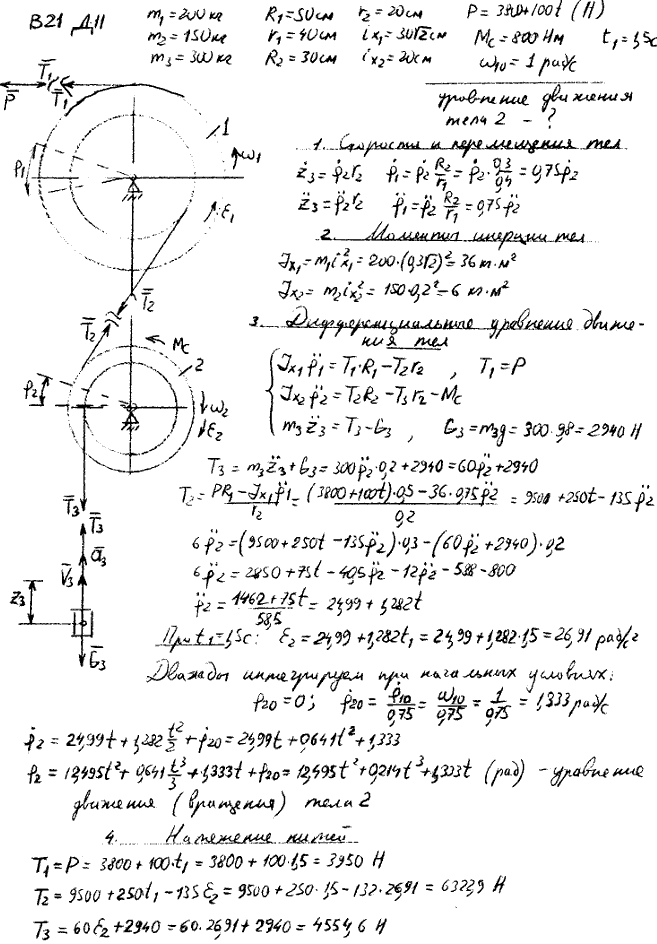 В21 Д11
m₁=200кг R₁=50см r₂=20см P=3800+100t (Н)
m₂=150кг r₁=40см i x₁=30√2см Mc=800Нм t₁=1,5с
m₃=300кг R₂=30см i x₂=20см ω₁₀=1 рад/с
уравнение движения
тела 2 - ?
1. Скорости и перемещения тел
ż₃=φ̇₂r₂ φ̇₁=φ̇₂ R₂/r₁=φ̇₂·0,3/0,4=0,75φ̇₂
z̈₃=φ̈₂r₂ φ̈₁=φ̈₂ R₂/r₁=0,75φ̈₂
2. Моменты инерции тел
Jx₁=m₁i²x₁=200·(0,3√2)²=36 кг·м²
Jx₂=m₂i²x₂=150·0,2²=6 кг·м²
3. Дифференциальные уравнение движе-
ния тел
Jx₁φ̈₁=T₁·R₁-T₂r₂ , T₁=P
Jx₂φ̈₂=T₂R₂-T₃r₂-Mc
m₃z̈₃=T₃-G₃ , G₃=m₃g=300·9,8=2940 Н
T₃=m₃z̈₃+G₃=300φ̈₂·0,2+2940=60φ̈₂+2940
T₂=(PR₁-Jx₁φ̈₁)/r₂=((3800+100t)·0,5-36·0,75φ̈₂)/0,2=9500+250t-135φ̈₂
6φ̈₂=(9500+250t-135φ̈₂)·0,3-(60φ̈₂+2940)·0,2
6φ̈₂=2850+75t-40,5φ̈₂-12φ̈₂-588-800
φ̈₂=(1462+75t)/58,5=24,99+1,282t
При t₁=1,5с: ε₂=24,99+1,282t₁=24,99+1,282·1,5=26,91 рад/с²
Дважды интегрируем при начальных условиях:
φ₂₀=0; φ̇₂₀=φ̇₁₀/0,75=ω₁₀/0,75=1/0,75=1,333рад/с
φ̇₂=24,99t+1,282t²/2+φ̇₂₀=24,99t+0,641t²+1,333
φ₂=12,495t²+0,641t³/3+1,333t+φ₂₀=12,495t²+0,214t³+1,333t (рад) -уравнение
движения (вращения) тела 2
4. Натяжение нитей
T₁=P=3800+100·t₁=3800+100·1,5=3950 Н
T₂=9500+250t₁-135ε₂=9500+250·1,5-132·26,91=6322,9 Н
T₃=60ε₂+2940=60·26,91+2940=4554,6 Н
T₁
P
T₁
1
ω₁
φ₁
ε₁
T₂
T₂
Mc
2
φ₂
ω₂
ε₂
T₃
T₃
a₃
V₃
z₃
G₃